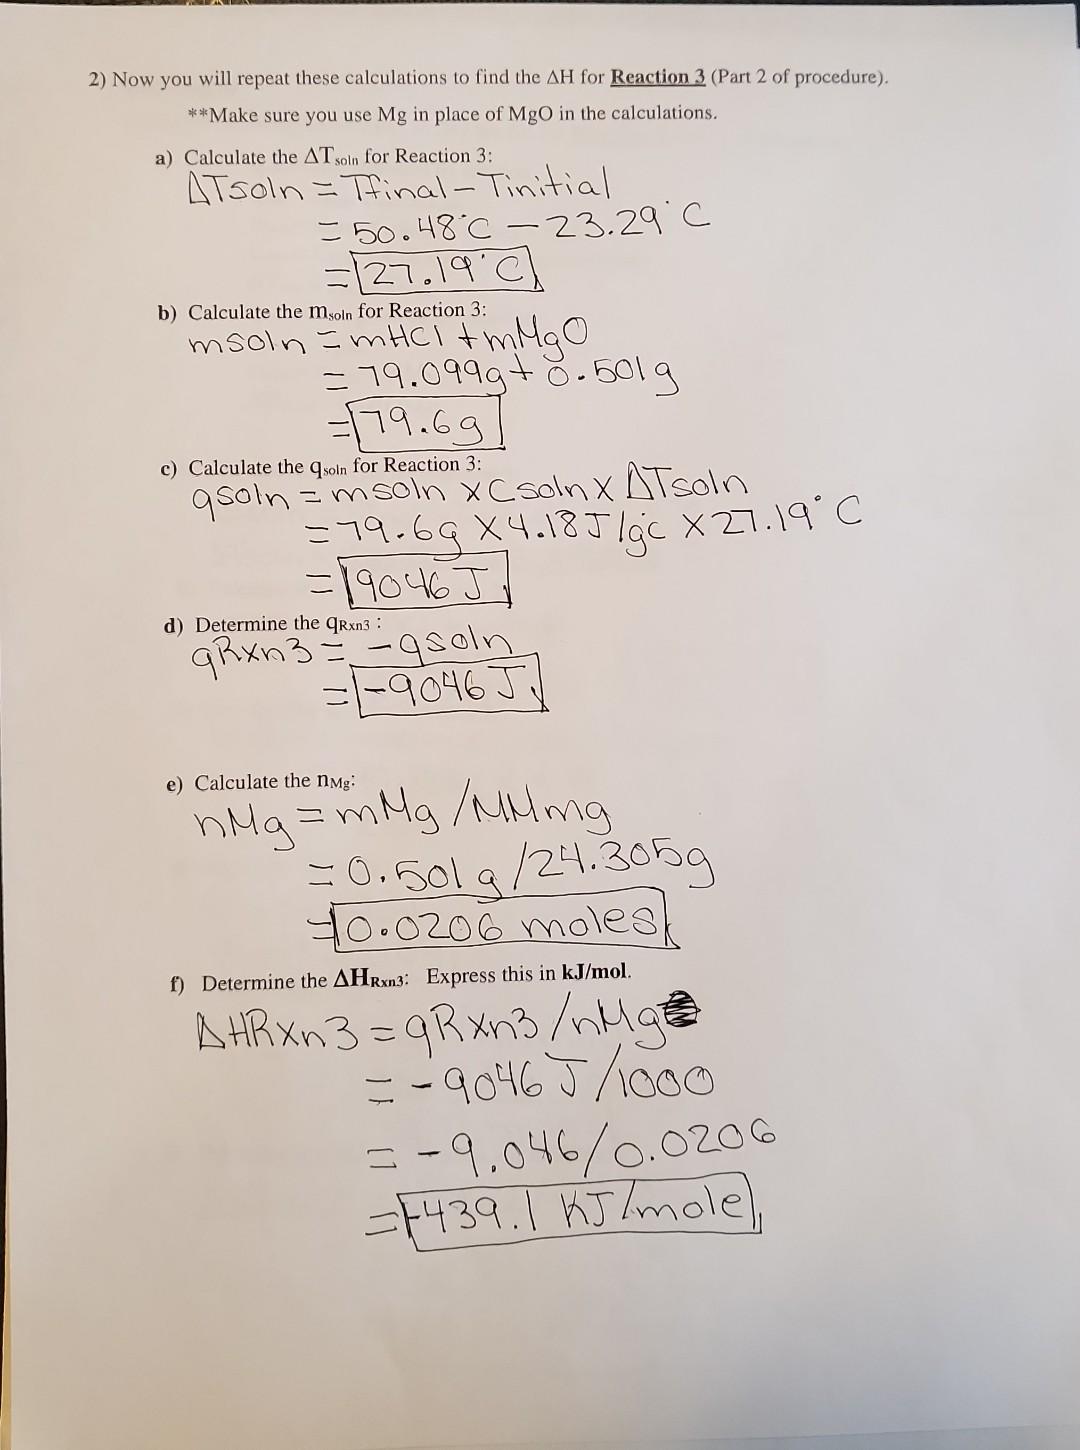 2) Now you will repeat these calculations to find the ΔH for Reaction 3 (Part 2 of procedure).
**Make sure you use Mg in place of MgO in the calculations.
a) Calculate the ΔTsoln for Reaction 3:
ΔTsoln = Tfinal - Tinitial
= 50.48°C - 23.29°C
= 27.19°C
b) Calculate the msoln for Reaction 3:
msoln = mHCl + mMgO
= 79.099g + 0.501g
= 79.6g
c) Calculate the qsoln for Reaction 3:
qsoln = msoln x Csoln x ΔTsoln
= 79.6g x 4.18J/g°c x 27.19°C
= 9046 J
d) Determine the qRxn3 :
qRxn3 = -qsoln
= -9046 J
e) Calculate the nMg:
nMg = mMg / MMmg
= 0.501g / 24.305g
= 0.0206 moles
f) Determine the ΔHRxn3: Express this in kJ/mol.
ΔHRxn3 = qRxn3 / nMg
= -9046 J / 1000
= -9.046 / 0.0206
= -439.1 KJ/mole